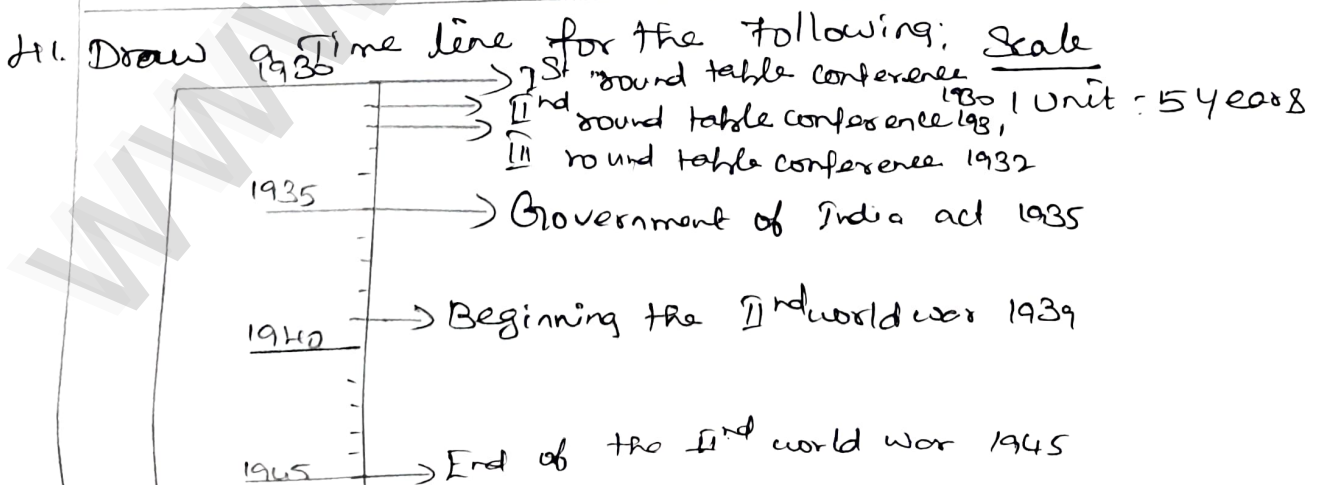 41. Draw a Time line for the following: Scale
1930 → Ist round table conference 1930 1 Unit : 5 years
→ IInd round table conference 1931
→ III round table conference 1932
1935 → Government of India act 1935
→ Beginning the IInd world war 1939
1940
1945 → End of the IInd world war 1945
WWW